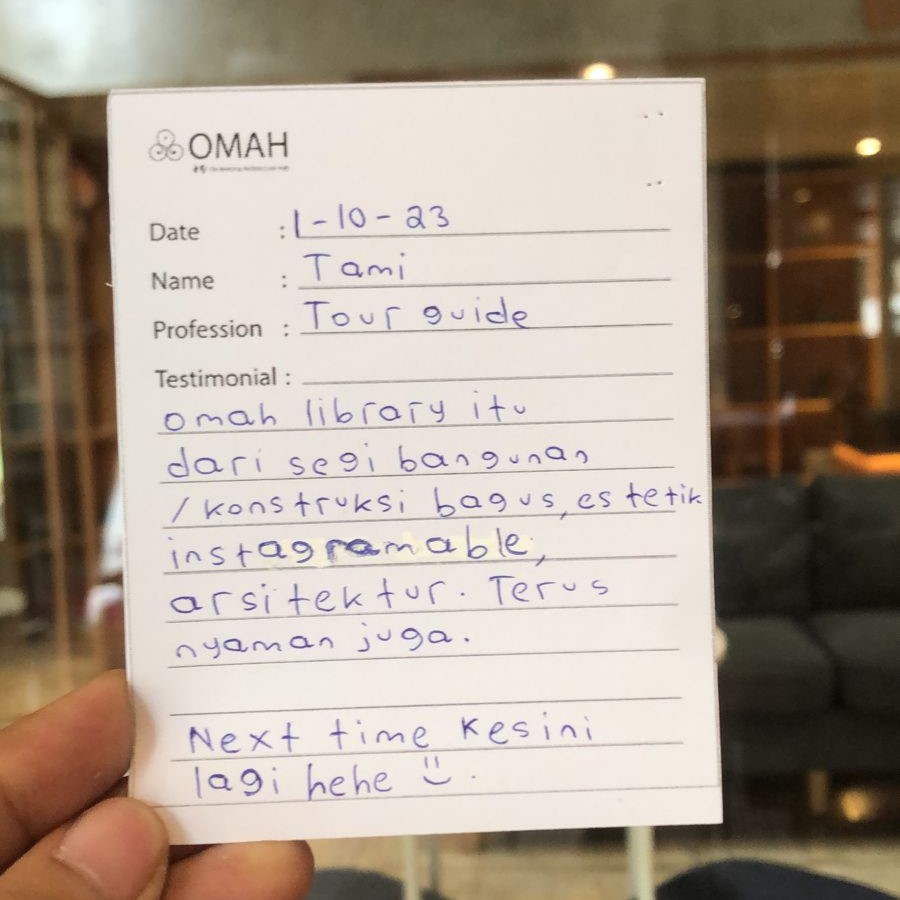 OMAH
Date : 1-10-23
Name : Tami
Profession : Tour guide
Testimonial :
omah library itu
dari segi bangunan
/ konstruksi bagus, estetik
instagramable,
arsitektur. Terus
nyaman juga.
Next time kesini
lagi hehe